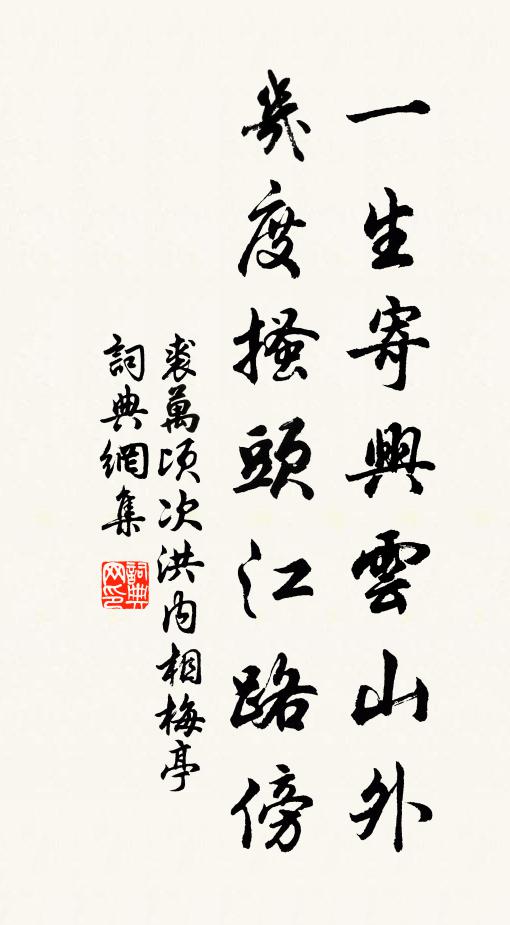 一生寄興雲山外
幾度搔頭江路傍
裘萬頃次洪內相梅亭
詞典網集
詞典网印